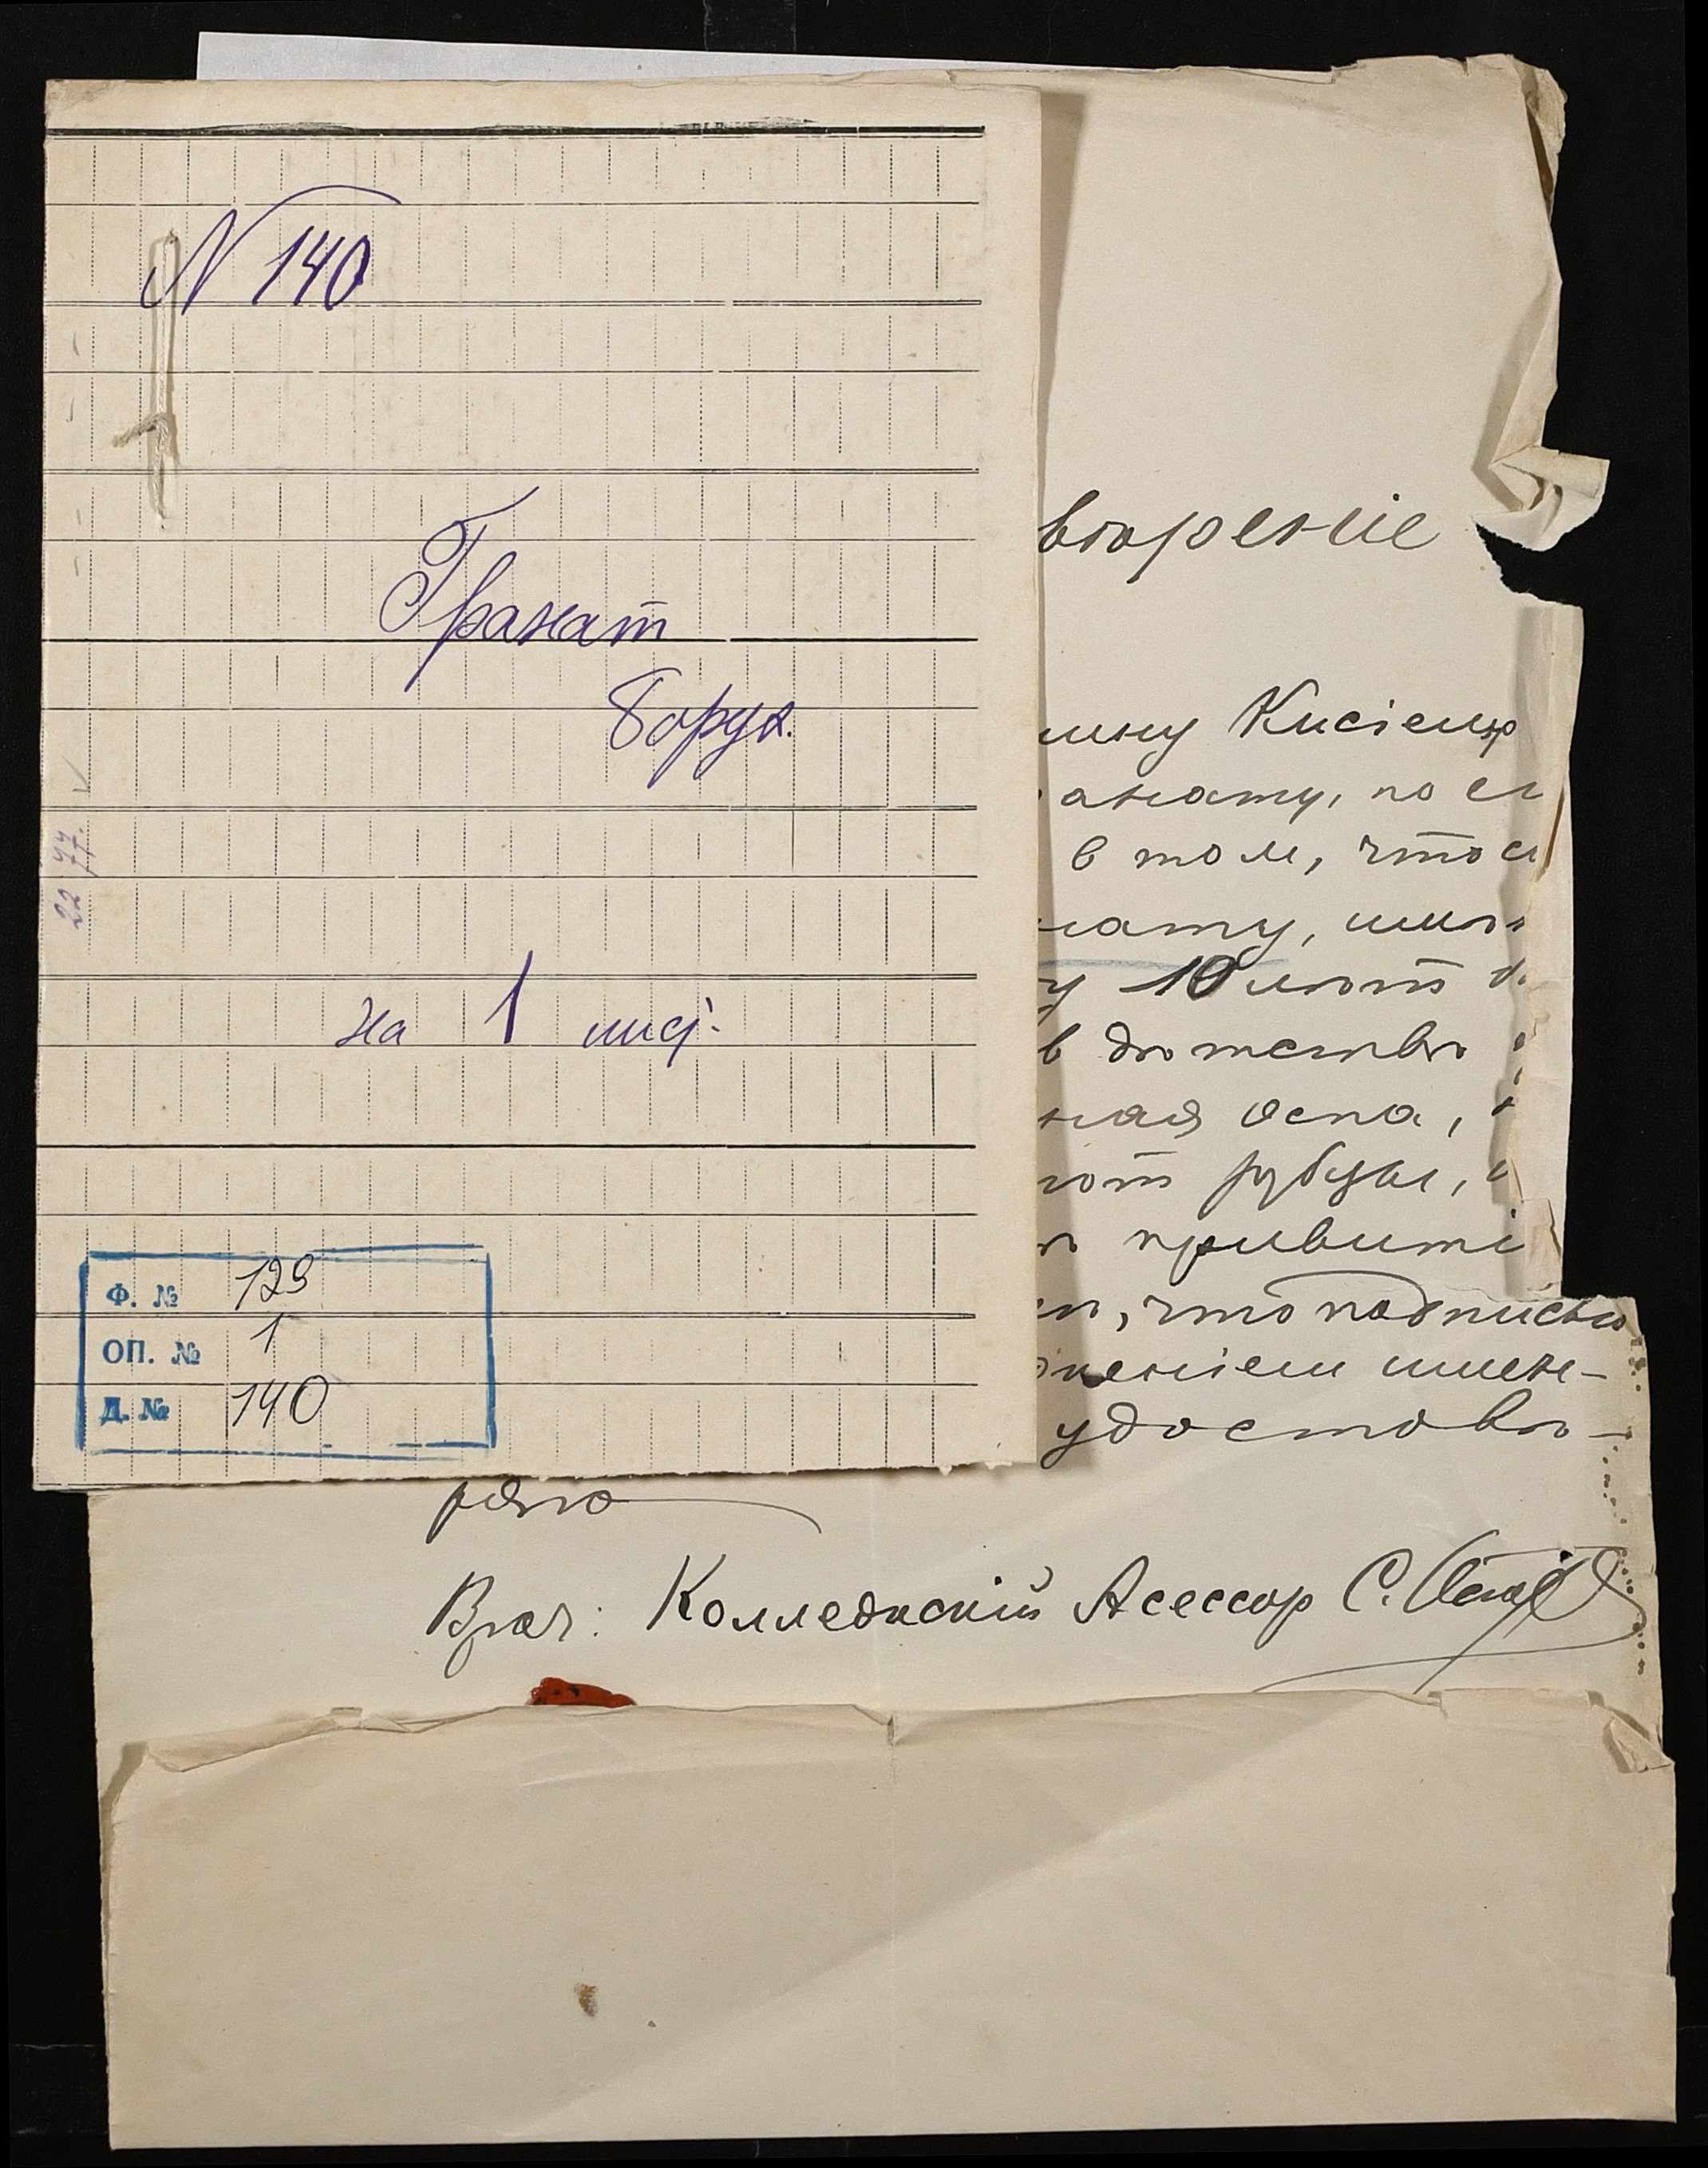 N 140
Гранат
Борух.
на 1 лис.
22 77.
Ф. № 129
ОП. № 1
Д. № 140
творенiе
ину Кисiелю
анату, по ег
в том, что сы
нату, имѣ
у 10 лѣт
в дѣтствѣ
ная оспа,
ют рубцы,
привитi
что подписью
женiем имен-
удостовѣ-
ряю
Врач: Колледжскiй Асессор С.